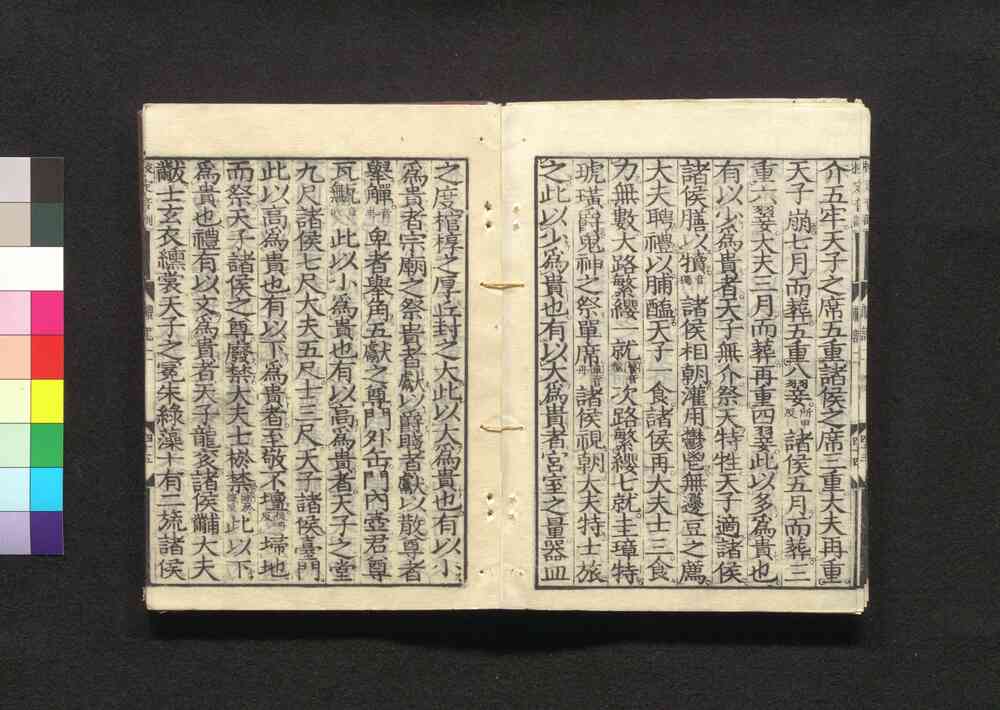 介五牢天子之席五重諸侯之席三重大夫再重
天子崩七月而葬五重八翣所甲反諸侯五月而葬三
重六翣大夫三月而葬再重四翣此以多為貴也
有以少為貴者天子無介祭天特牲天子適諸侯
諸侯膳以犢音獨諸侯相朝灌用鬱鬯無籩豆之薦
大夫聘禮以脯醢天子一食諸侯再大夫士三食
力無數大路繁纓一就次路繁纓七就圭璋特
琥璜爵鬼神之祭單席諸侯視朝大夫特士旅
之此以少為貴也有以大為貴者宮室之量器皿
之度棺椁之厚丘封之大此以大為貴也有以小
為貴者宗廟之祭貴者獻以爵賤者獻以散尊者
舉觶卑者舉角五獻之尊門外缶門內壺君尊
瓦甒此以小為貴也有以高為貴者天子之堂
九尺諸侯七尺大夫五尺士三尺天子諸侯臺門
此以高為貴也有以下為貴者至敬不壇埽地
而祭天子諸侯之尊廢禁大夫士棜禁此以下
為貴也禮有以文為貴者天子龍衮諸侯黼大夫
黻士玄衣纁裳天子之冕朱綠藻十有二旒諸侯